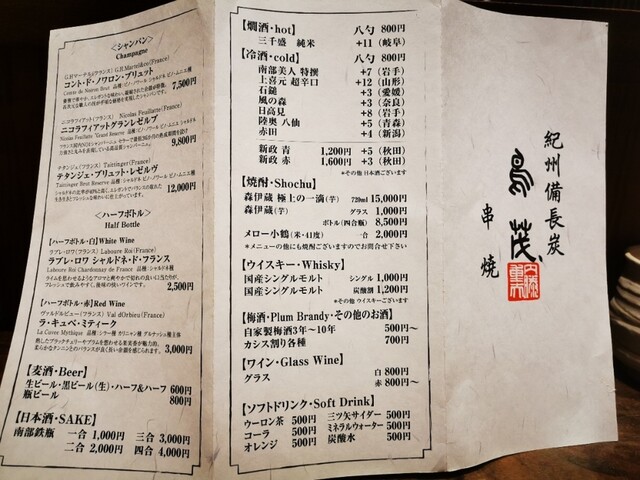 <シャンパン>
Champagne
G.Hマーテル(フランス) G.H.Martel&co(France)
コント・ド・ノワロン・ブリュット
Comte de Noiron Brut 品種:ピノ・ノワール シャルドネ ピノ・ムニエ
7,500円
ニコラフィアット(フランス) Nicolas Feuillatte(France)
ニコラフィアットグランレゼルブ
Nicolas Feuillatte Grand Reserve 品種:ピノ・ノワール ピノ・ムニエ シャルドネ
9,800円
テタンジェ(フランス) Taittinger(France)
テタンジェ・ブリュット・レゼルヴ
Taittinger Brut Reserve 品種:シャルドネ ピノ・ノワール ピノ・ムニエ
12,000円
<ハーフボトル>
Half Bottle
【ハーフボトル・白】White Wine
ラブレ・ロワ(フランス) Laboure Roi(France)
ラブレ・ロワ シャルドネ・ド・フランス
Laboure Roi Chardonnay de France 品種:シャルドネ
2,500円
【ハーフボトル・赤】Red Wine
ヴァルドルビュー(フランス) Val dOrbieu(France)
ラ・キュベ・ミティーク
La Cuvee Mythique 品種:シラー カリニャン種 グルナッシュ種主体
3,000円
【麦酒・Beer】
生ビール・黒ビール(生)・ハーフ&ハーフ 600円
瓶ビール 800円
【日本酒・SAKE】
南部鉄瓶 一合 1,000円 三合 3,000円
二合 2,000円 四合 4,000円
【燗酒・hot】 八勺 800円
三千盛 純米 +11(岐阜)
【冷酒・cold】 八勺 800円
南部美人 特撰 +7(岩手)
上喜元 超辛口 +12(山形)
石鎚 +3(愛媛)
風の森 +3(奈良)
日高見 +8(岩手)
陸奥 八仙 +5(青森)
赤田 +4(新潟)
新政 青 1,200円 +5(秋田)
新政 赤 1,600円 +3(秋田)
*その他 日本酒ございます
【焼酎・Shochu】
森伊蔵 極上の一滴(芋) 720ml 15,000円
森伊蔵(芋) グラス 1,000円
ボトル(四合瓶) 8,500円
メロー小鶴(米・41度) 一合 2,000円
*メニューの他にも焼酎ございますのでお問合せ下さい
【ウイスキー・Whisky】
国産シングルモルト シングル 1,000円
国産シングルモルト 炭酸割 1,200円
*その他 ウイスキーございます
【梅酒・Plum Brandy・その他のお酒】
自家製梅酒3年〜10年 500円〜
カシス割り各種 700円
【ワイン・Glass Wine】
グラス 白 800円
赤 800円〜
【ソフトドリンク・Soft Drink】
ウーロン茶 500円 三ツ矢サイダー 500円
コーラ 500円 ミネラルウォーター 500円
オレンジ 500円 炭酸水 500円
紀州備長炭
鳥茂
串焼